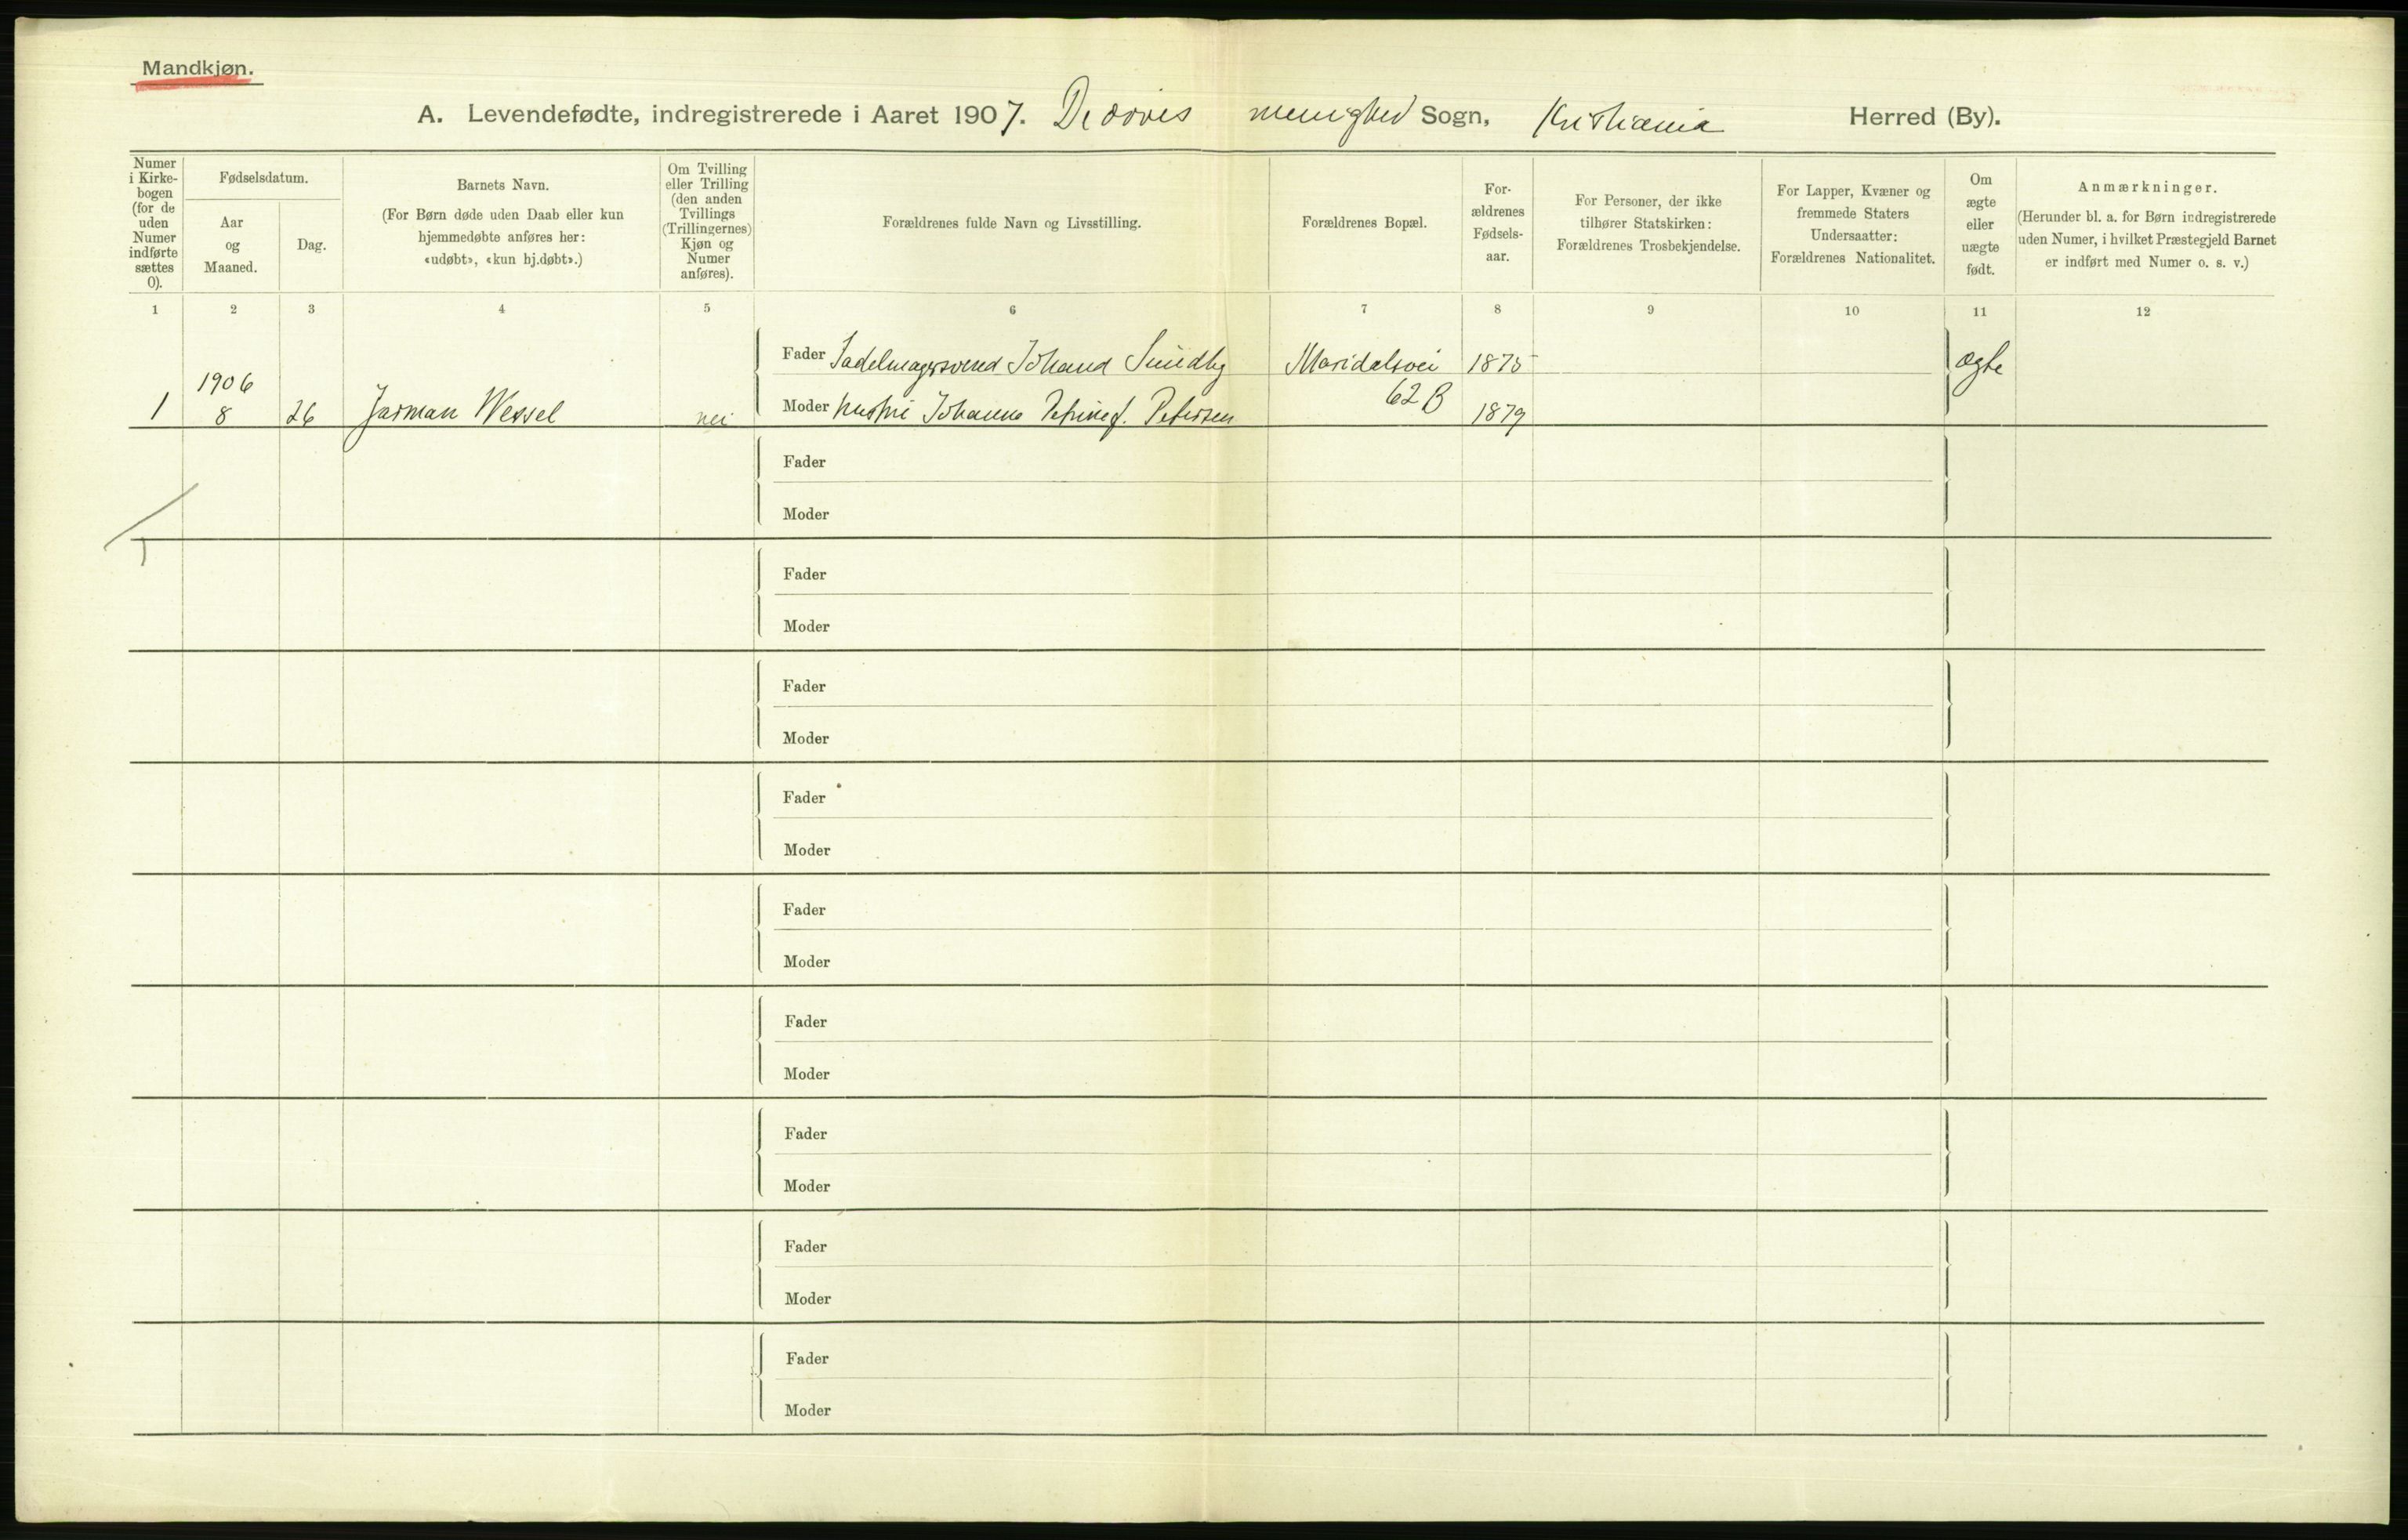 Mandkjøn.
A. Levendefødte, indregistrerede i Aaret 1907. De døves menighed Sogn, Kristiania Herred (By).
Numer i Kirkebogen (for de uden Numer indførte sættes 0).
Fødselsdatum.
Aar og Maaned.
Dag.
Barnets Navn.
(For Børn døde uden Daab eller kun
hjemmedøbte anføres her:
«udøbt», «kun hj.døbt».)
Om Tvilling
eller Trilling
(den anden
Tvillings
(Trillingernes)
Kjøn og
Numer
anføres).
Forældrenes fulde Navn og Livsstilling.
Forældrenes Bopæl.
For-
ældrenes
Fødsels-
aar.
For Personer, der ikke
tilhører Statskirken:
Forældrenes Trosbekjendelse.
For Lapper, Kvæner og
fremmede Staters
Undersaatter:
Forældrenes Nationalitet.
Om
ægte
eller
uægte
født.
Anmærkninger.
(Herunder bl. a. for Børn indregistrerede
uden Numer, i hvilket Præstegjeld Barnet
er indført med Numer o. s. v.)
1 2 3 4 5 6 7 8 9 10 11 12
Fader Sadelmagersvend Johand Smidby Maridalsvei 1875 ægte
1906
1 8 26 Jarman Wessel nei Moder hustru Johanne Petrine f. Petersen 62 B 1879
Fader
Moder
Fader
Moder
Fader
Moder
Fader
Moder
Fader
Moder
Fader
Moder
Fader
Moder
Fader
Moder
Fader
Moder